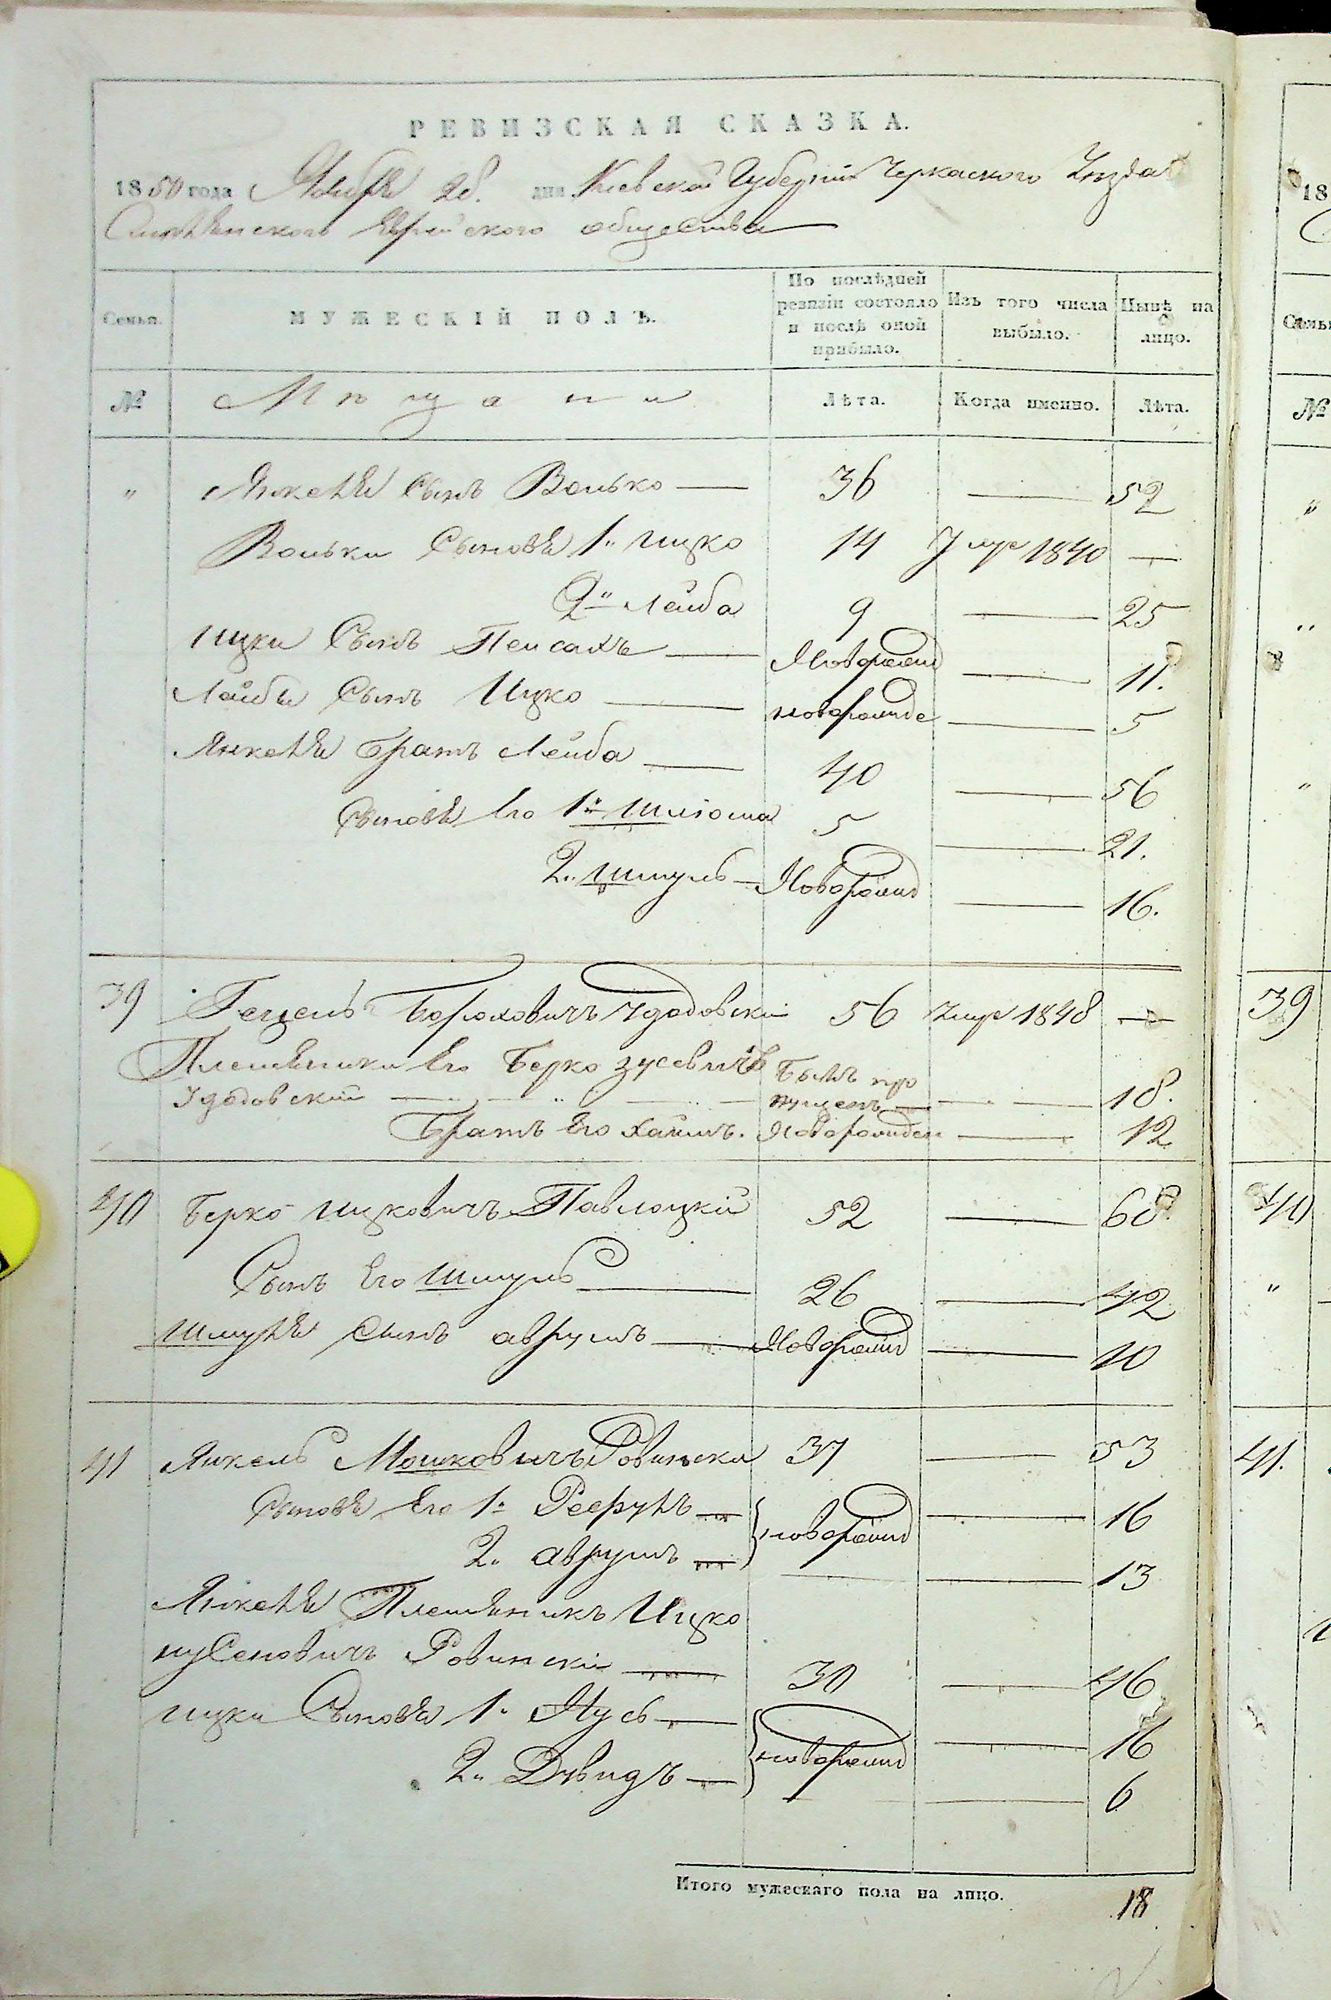 РЕВИЗСКАЯ СКАЗКА.
1850 года Ноября 28. дня Киевской Губерніи Черкаского Уезда
Еврейского общества
Семьи.
МУЖЕСКІЙ ПОЛЪ.
По послѣдней ревизіи состояло и послѣ оной прибыло.
Изъ того числа выбыло.
Нынѣ на лицо.
№ Мѣщане Лѣта. Когда именно. Лѣта.
" Янкеля Сынъ Волько — 36 — 52
Вольки Сыновья 1. Ицко 14 умр 1840 —
2й Лейба 9 — 25
Ицки Сынъ Пейсахъ — Новорожд — 11.
Лейбы Сынъ Ицко — новорожде — 5
Янкеля Братъ Лейба — 40 — 56
Сыновья Его 1й Шліома 5 — 21.
2. Шмуль — Новорожд — 16.
39 Гецель Бороховичъ Удодовски 56 умр 1848 —
Племянники Его Берко Зусевичъ Былъ про
Удодовский — пущенъ — 18.
Братъ Его Хаимъ. Новорожден — 12
40 Берко Ицковичъ Павлоцкій 52 — 68
Сынъ Его Шмуль — 26 — 42
Шмуля Сынъ Аврумъ — Новорожд — 10
41 Янкель Мошковичъ Ровински 37 — 53
Сыновья Его 1. — новорожд — 16
2. Аврумъ — 13
Янкеля Племянникъ Ицко
Нусеновичъ Ровинскі — 30 — 46
Ицки Сыновья 1. Нусь — новорожд — 16
2. Дувидъ — 6
Итого мужескаго пола на лицо. 18
18
Семьи
№
"
"
"
39
40
"
41.